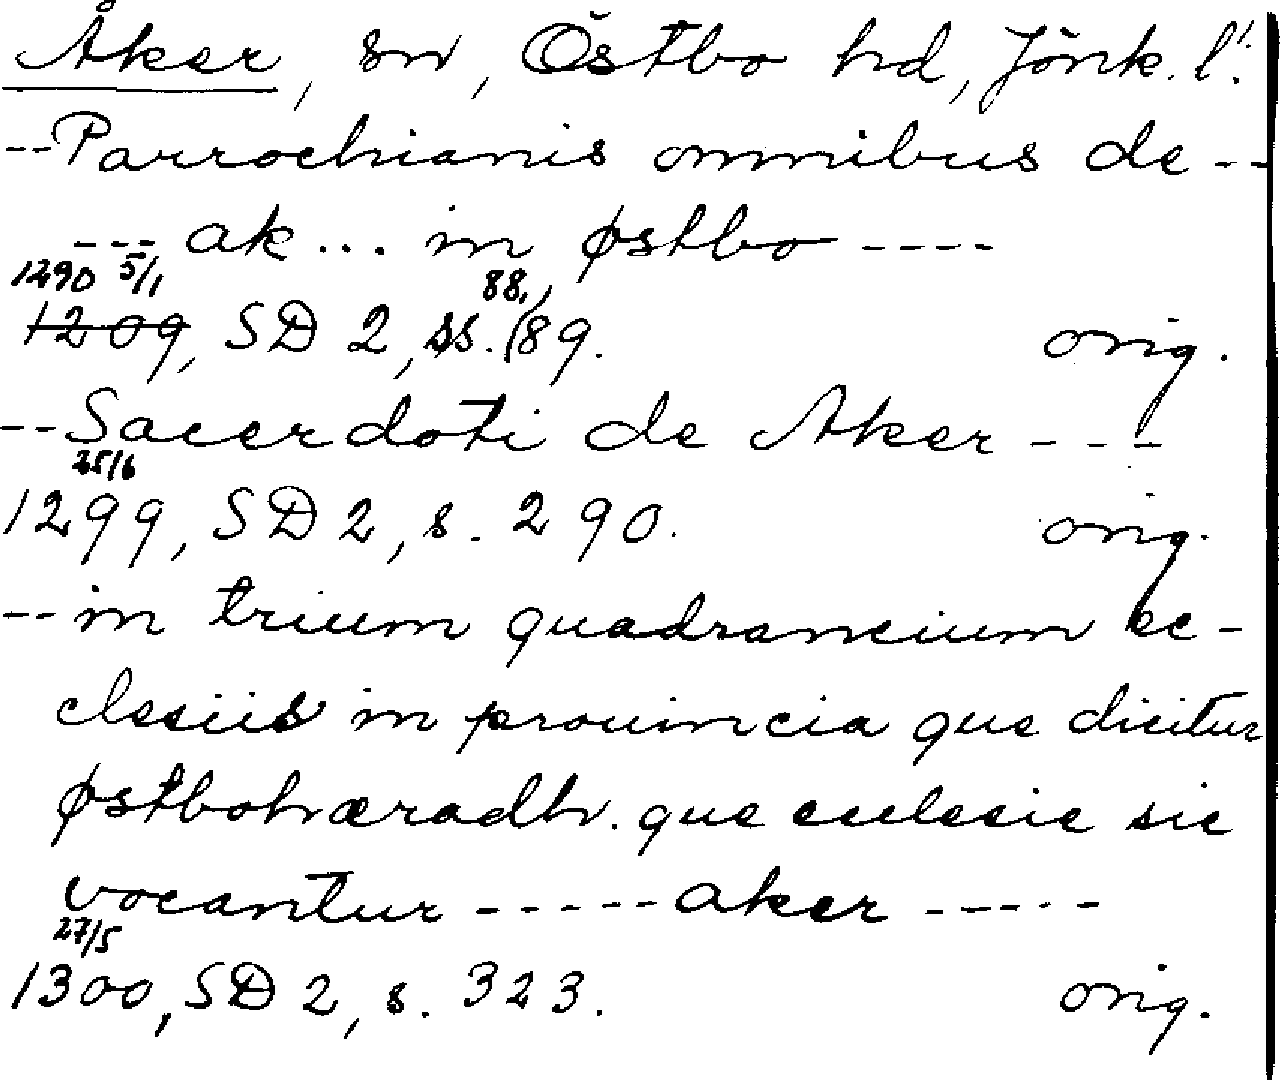 Åker, sn, Östbo hd, Jönk. l.
--Parrochianis omnibus de--
--- ak... in østbo ----
1290 5/1 88,
1209, SD 2, ss. 89. orig.
--Sacerdoti de Aker ---
25/6
1299, SD 2, s. 290. orig.
--in trium quadrancium ec-
clesiis in prouincia que dicitur
østbohæradh. que ecclesie sic
vocantur ----- aker -----
27/5
1300, SD 2, s. 323. orig.